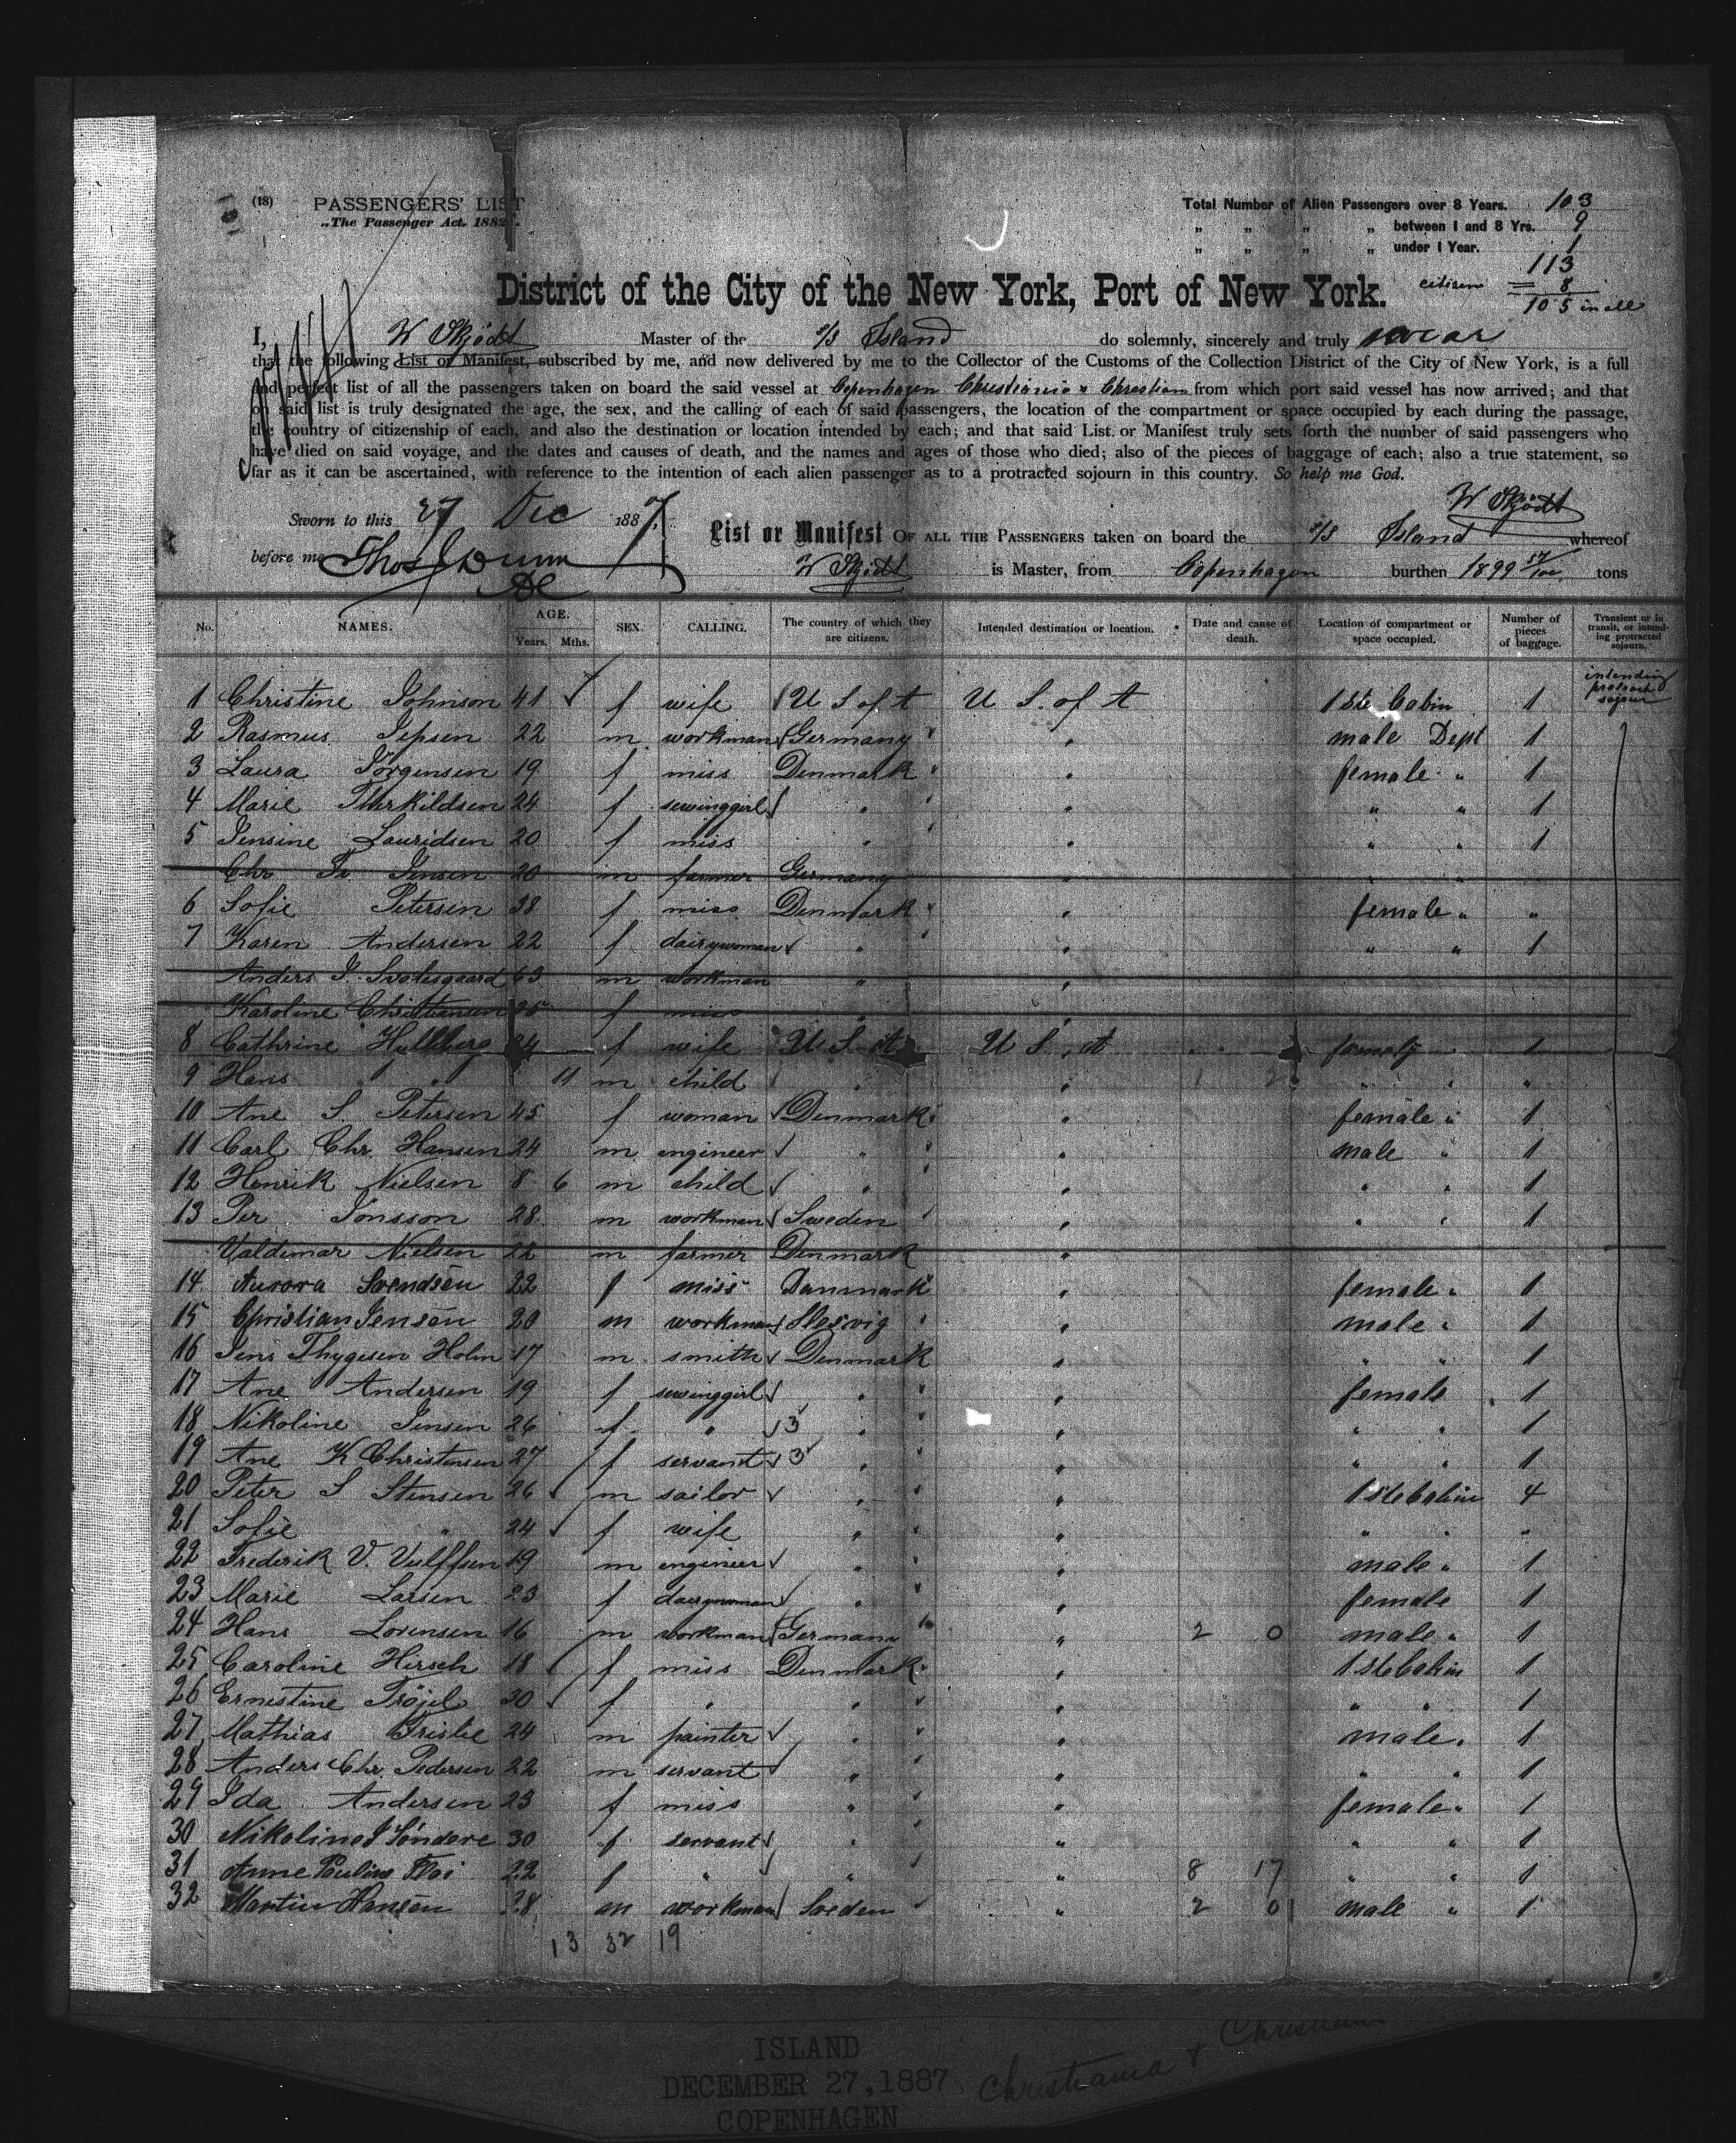 (18) PASSENGERS' LIST
„The Passenger Act. 1882".
Total Number of Alien Passengers over 8 Years. 103
„ „ „ „ between 1 and 8 Yrs. 9
„ „ „ „ under 1 Year. 1
113
citizens = 8
105 in all
District of the City of the New York, Port of New York.
I, W Skjödt Master of the S/S Island do solemnly, sincerely and truly swear
that the following List or Manifest, subscribed by me, and now delivered by me to the Collector of the Customs of the Collection District of the City of New York, is a full
and perfect list of all the passengers taken on board the said vessel at Copenhagen Christiania & Christian from which port said vessel has now arrived; and that
on said list is truly designated the age, the sex, and the calling of each of said passengers, the location of the compartment or space occupied by each during the passage,
the country of citizenship of each, and also the destination or location intended by each; and that said List or Manifest truly sets forth the number of said passengers who
have died on said voyage, and the dates and causes of death, and the names and ages of those who died; also of the pieces of baggage of each; also a true statement, so
far as it can be ascertained, with reference to the intention of each alien passenger as to a protracted sojourn in this country. So help me God.
W Skjödt
Sworn to this 27 Dec 1887,
before me Thos J Dunn
DC
List or Manifest OF ALL THE PASSENGERS taken on board the S/S Island whereof
W Skjödt is Master, from Copenhagen burthen 1899 57/100 tons
No. NAMES. AGE. Years. Mths. SEX. CALLING. The country of which they are citizens. Intended destination or location. Date and cause of death. Location of compartment or space occupied. Number of pieces of baggage. Transient or in transit, or intending protracted sojourn.
1 Christine Johnson 41 f wife U S of A U S. of A 1ste Cabin 1 intending protract sojour
2 Rasmus Jepsen 22 m workman Germany „ male Dept 1
3 Laura Jörgensen 19 f miss Denmark „ female „ 1
4 Marie Therkildsen 24 f sewinggirl „ „ „ „ 1
5 Jensine Lauridsen 20 f miss „ „ „ „ 1
Chr Fr Jensen 20 m farmer Germany „ „ „
6 Sofie Petersen 38 f miss Denmark „ female „ „
7 Karen Andersen 22 f dairywoman „ „ „ „ 1
Anders J. Svolesgaard 63 m workman „ „
Karoline Christiansen 25 f miss „ „
8 Cathrine Hyllberg 24 f wife U S A U S A family 1
9 Hans „ 11 m child „ „ „ „ „
10 Ane S. Petersen 45 f woman Denmark „ female „ 1
11 Carl Chr. Hansen 24 m engineer „ „ male „ 1
12 Henrik Nielsen 8 6 m child „ „ „ „ 1
13 Per Jonsson 28 m workman Sweden „ „ „ 1
Valdemar Nielsen 22 m farmer Denmark „
14 Aurora Svendsen 22 f miss Danmark „ female „ 1
15 Christian Jensen 20 m workman Slesvig „ male „ 1
16 Jens Thygesen Holm 17 m smith Denmark „ „ „ 1
17 Ane Andersen 19 f sewinggirl „ „ female 1
18 Nikoline Jensen 26 f „ 3 „ „ „ „ 1
19 Ane K Christensen 27 f servant 3 „ „ „ „ 1
20 Peter S Stensen 26 m sailor „ „ 1ste Cabin 4
21 Sofie „ 24 f wife „ „ „ „ „
22 Frederik V. Vulffsen 19 m engineer „ „ male „ 1
23 Marie Larsen 23 f dairywoman „ „ female 1
24 Hans Lorensen 16 m workman Germany „ 2 0 male „ 1
25 Caroline Hirsch 18 f miss Denmark „ 1ste Cabin 1
26 Ernestine Tröjel 20 f „ „ „ „ „ 1
27 Mathias Fristie 24 m painter „ „ male „ 1
28 Anders Chr. Pedersen 22 m servant „ „ „ „ 1
29 Ida Andersen 23 f miss „ „ female „ 1
30 Nikoline J Söndere 30 f servant „ „ „ „ 1
31 Anne Pauline 22 f „ „ „ 8 17 „ „ 1
32 Martin Hansen 28 m workman Sveden „ 2 0 male „ 1
13 32 19
ISLAND
DECEMBER 27, 1887 Christiania & Christian
COPENHAGEN